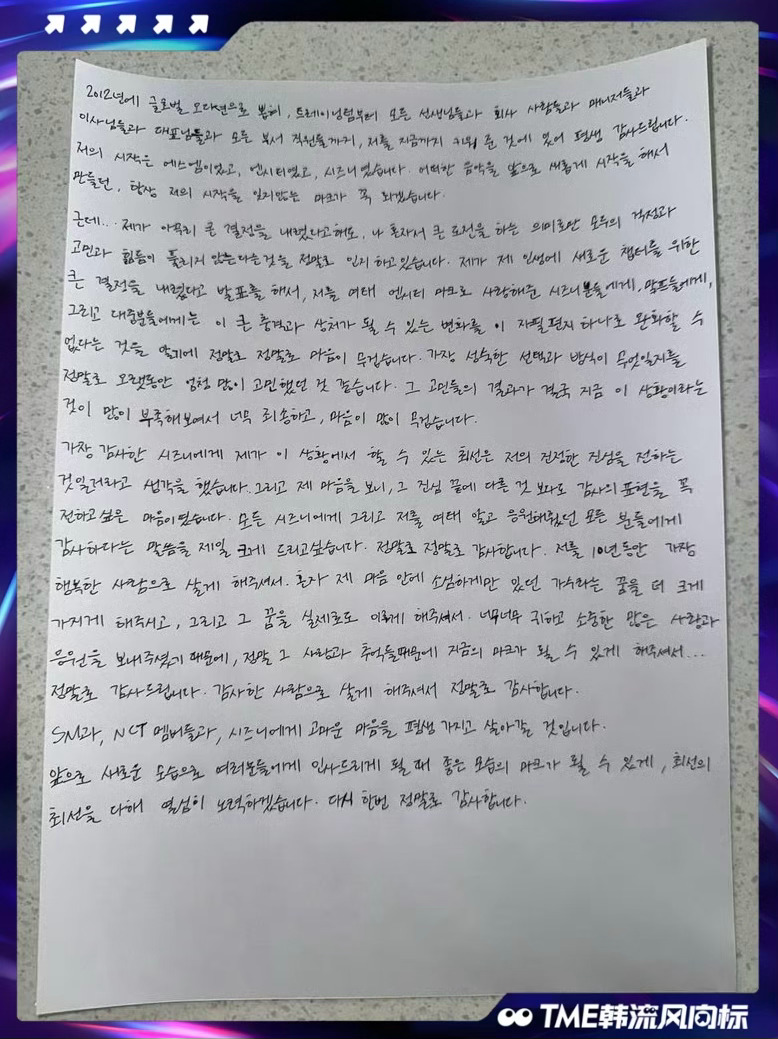 2012년에 글로벌 오디션으로 뽑혀, 트레이닝팀부터 모든 선생님들과 회사 사람들과 매니저들과
이사님들과 대표님들과 모든 부서 직원들까지, 저를 지금까지 키워 준 것에 있어 평생 감사드립니다.
저의 시작은 에스엠이였고, 엔시티였고, 시즈니였습니다. 어떠한 음악을 앞으로 새롭게 시작을 해서
만들던, 항상 저의 시작을 잊지않는 마크가 꼭 되겠습니다.
근데... 제가 아무리 큰 결정을 내렸다고해도, 나 혼자서 큰 도전을 하는 의미로만 모두의 걱정과
고민과 힘듦이 풀리지 않는다는것을 정말로 인지 하고있습니다. 제가 제 인생에 새로운 챕터를 위한
큰 결정을 내렸다고 발표를 해서, 저를 여태 엔시티 마크로 사랑해준 시즈니분들에게, 맠프들에게,
그리고 대중분들에게는 이 큰 충격과 상처가 될 수 있는 변화를 이 자필편지 하나로 완화할 수
없다는 것을 알기에 정말로 정말로 마음이 무겁습니다. 가장 성숙한 선택과 방식이 무엇일지를
정말로 오랫동안 엄청 많이 고민했던 것 같습니다. 그 고민들의 결과가 결국 지금 이 상황이라는
것이 많이 부족해보여서 너무 죄송하고, 마음이 많이 무겁습니다.
가장 감사한 시즈니에게 제가 이 상황에서 할 수 있는 최선은 저의 진정한 진심을 전하는
것일거라고 생각을 했습니다. 그리고 제 마음을 보니, 그 진심 끝에 다른 것 보다도 감사의 표현을 꼭
전하고싶은 마음이였습니다. 모든 시즈니에게 그리고 저를 여태 알고 응원해줬던 모든 분들에게
감사하다는 말씀을 제일 크게 드리고싶습니다. 정말로 정말로 감사합니다. 저를 10년동안 가장
행복한 사람으로 살게 해주셔서. 혼자 제 마음 안에 소심하게만 있던 가수라는 꿈을 더 크게
가지게 해주시고, 그리고 그 꿈을 실제로도 이루게 해주셔서. 너무너무 귀하고 소중한 많은 사랑과
응원을 보내주셨기 때문에, 정말 그 사랑과 추억들때문에 지금의 마크가 될 수 있게 해주셔서...
정말로 감사드립니다. 감사한 사람으로 살게 해주셔서 정말로 감사합니다.
SM과, NCT 멤버들과, 시즈니에게 고마운 마음을 평생 가지고 살아갈 것입니다.
앞으로 새로운 모습으로 여러분들에게 인사드리게 될 때 좋은 모습의 마크가 될 수 있게, 최선의
최선을 다해 열심히 노력하겠습니다. 다시 한번 정말로 감사합니다.
TME韩流风向标